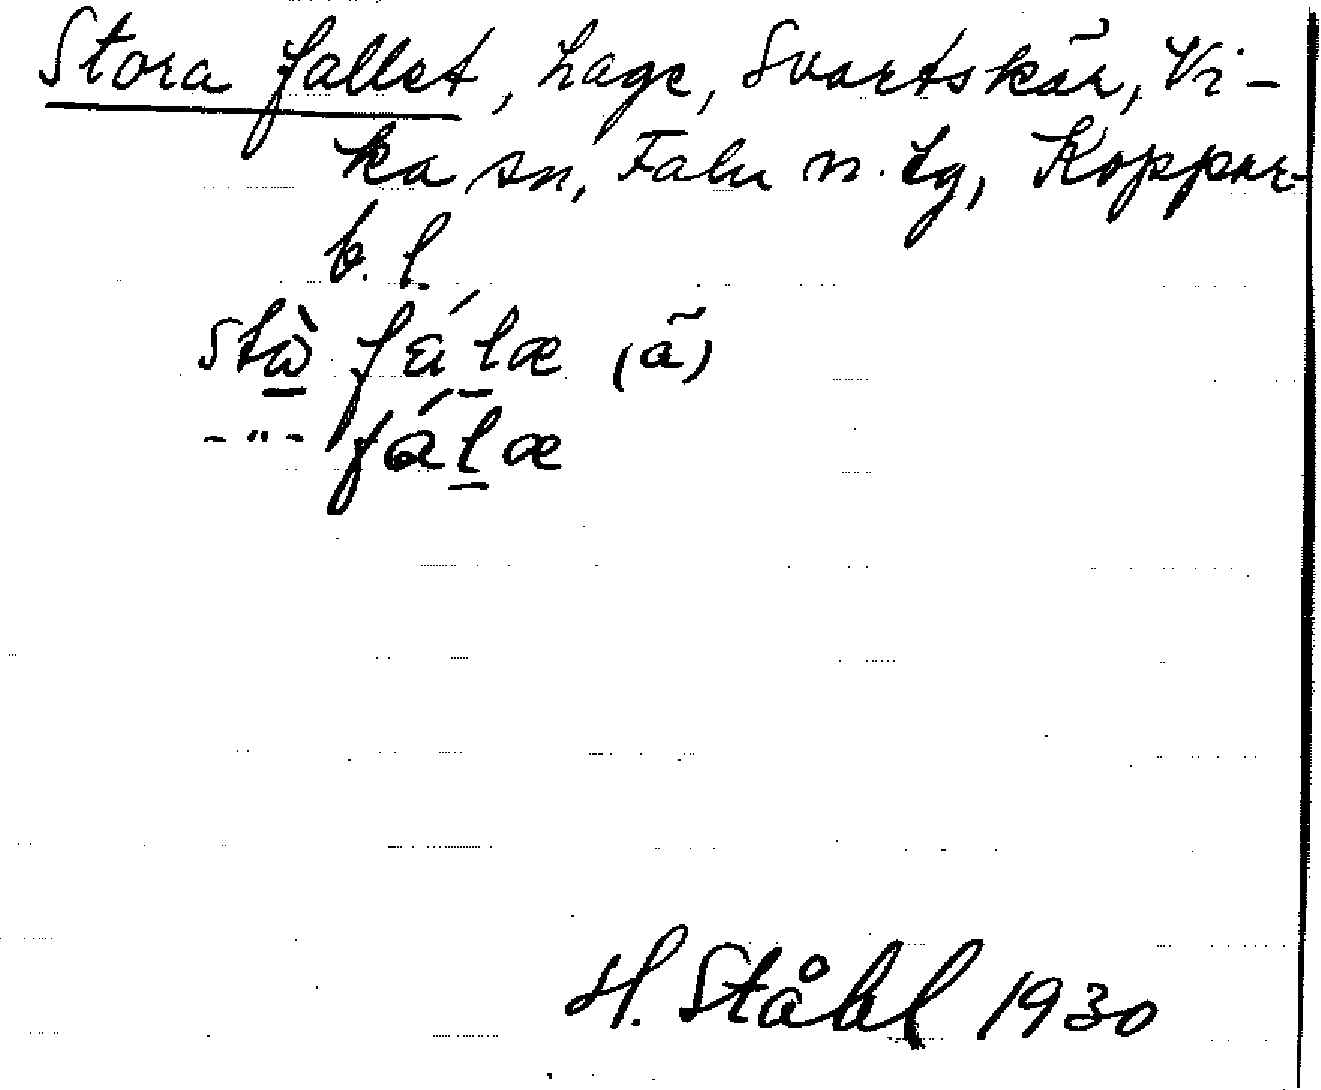 Stora fallet, hage, Svartskär, Vi-
ka sn, Falu n. tg, Koppar-
b. l.
stà fálæ (ã)
-"- fálæ
H. Ståhl 1930